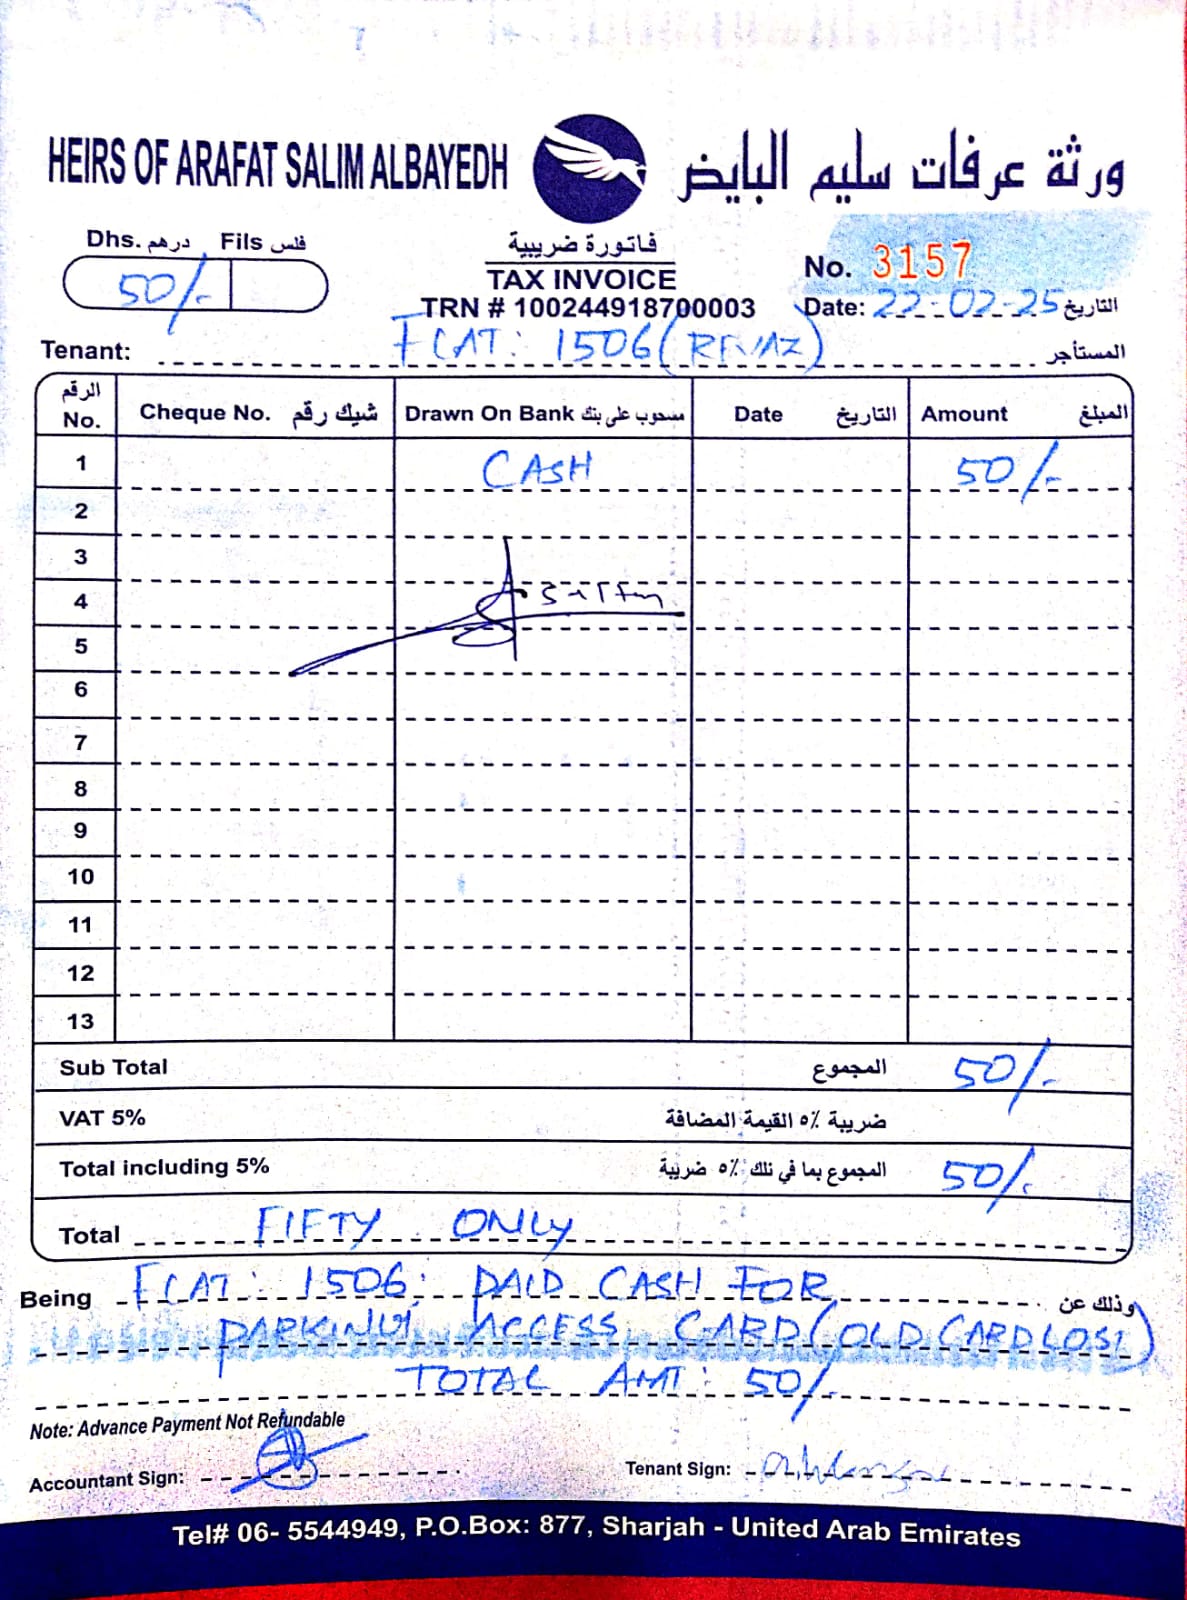 HEIRS OF ARAFAT SALIM ALBAYEDH ورثة عرفات سليم البايض
Dhs. درهم Fils فلس
50/-
فاتورة ضريبية
TAX INVOICE
TRN # 100244918700003
No. 3157
Date: 22-02-25 التاريخ
Tenant: FLAT: 1506 (RIYAZ) المستأجر
الرقم No. Cheque No. شيك رقم Drawn On Bank مسحوب على بنك Date التاريخ Amount المبلغ
1 CASH 50/-
2
3
4
5
6
7
8
9
10
11
12
13
Sub Total المجموع 50/-
VAT 5% ضريبة ٥٪ القيمة المضافة
Total including 5% المجموع بما في ذلك ٥٪ ضريبة 50/-
Total FIFTY ONLY
Being FLAT: 1506: PAID CASH FOR وذلك عن
PARKING ACCESS CARD (OLD CARD LOST)
TOTAL AMT: 50/-
Note: Advance Payment Not Refundable
Accountant Sign: Tenant Sign:
Tel# 06- 5544949, P.O.Box: 877, Sharjah - United Arab Emirates